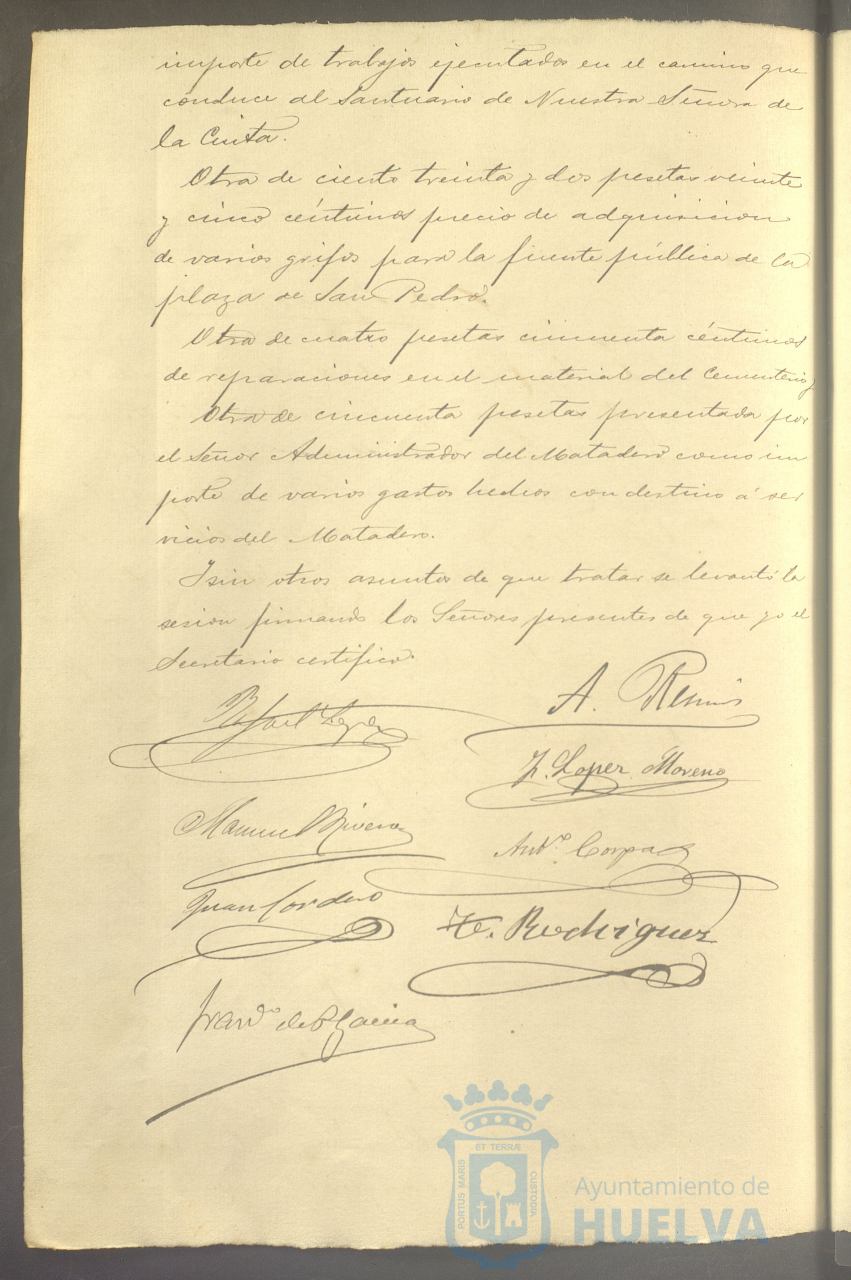 importe de trabajos ejecutados en el camino que
conduce al Santuario de Nuestra Señora de
la Cinta.
Otra de ciento treinta y dos pesetas veinte
y cinco céntimos precio de adquisicion
de varios grifos para la fuente pública de la
plaza de San Pedro.
Otra de cuatro pesetas cincuenta céntimos
de reparaciones en el material del Cementerio y
Otra de cincuenta pesetas presentada por
el Señor Administrador del Matadero como im
porte de varios gastos hechos con destino á ser
vicios del Matadero.
Y sin otros asuntos de que tratar se levantó la
sesion firmando los Señores presentes de que yo el
Secretario certifico.
A.
Rafael Lopez
J. Lopez Moreno
Manuel Rivero
Antº
Juan Cordero
Rodriguez
de
ET TERRÆ
PORTUS MARIS
CUSTODIA
Ayuntamiento de
HUELVA